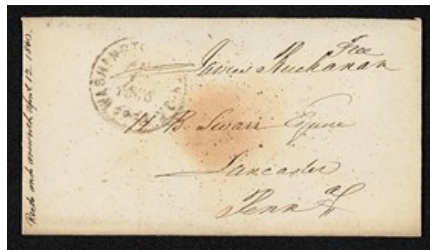 Free
James Buchanan
H. B. Swarr Esquire
Lancaster
Penn a
WASHINGTON
Recd and answered April 12. 1860.